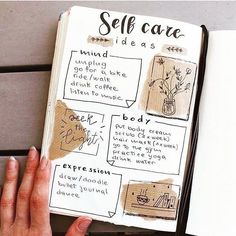 Self care
ideas
mind
unplug
go for a bike
ride/walk
drink coffee
listen to music
seek
the
light
body
put body cream
scrub (2xweek)
hair mask (2xweek)
go to the gym
practice yoga
drink water
expression
draw/doodle
bullet journal
dance